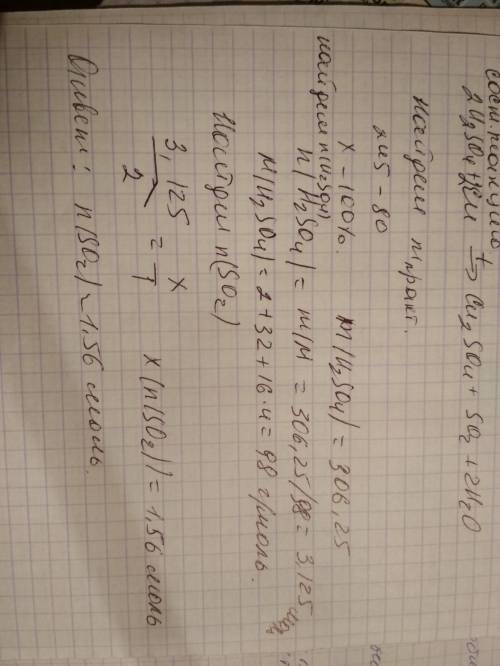 2H₂SO₄ + 2Cu t⇒ Cu₂SO₄ + SO₂ + 2H₂O
Найдем m практ.
245 – 80
x – 100%. m(H₂SO₄) = 306,25
найдем n(H₂SO₄)
n(H₂SO₄) = m/M = 306,25/98 = 3,125
M(H₂SO₄) = 2 + 32 + 16·4 = 98 г/моль.
Найдем n(SO₂)
3,125/2 = x/1 x(n(SO₂)) = 1,56 моль
Ответ: n(SO₂) ~ 1,56 моль.